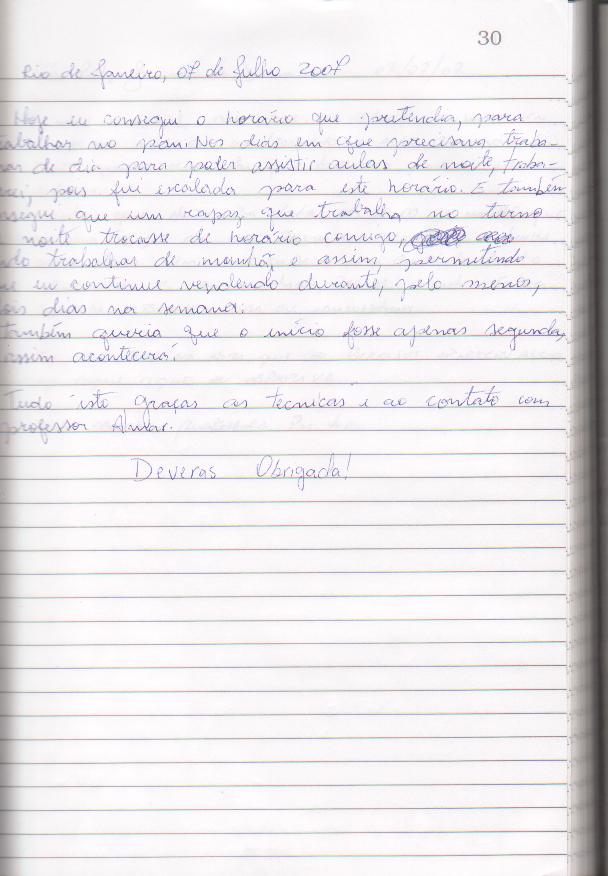 30
Rio de Janeiro, 07 de Julho 2007
Hoje eu consegui o horário que pretendia, para
abalhar no pan. Nos dias em que precisava traba-
ar de dia para poder assistir aulas de noite, traba-
ei, pois fui escalada para este horário. E também
nsegui que um rapaz que trabalha no turno
noite trocasse de horário comigo,
ndo trabalhar de manhã, e assim, permitindo
ue eu continue vendendo durante, pelo menos,
ois dias na semana.
Também queria que o início fosse apenas segunda,
assim acontecerá.
Tudo isto graças as técnicas e ao contato com
professor
Deveras Obrigada!